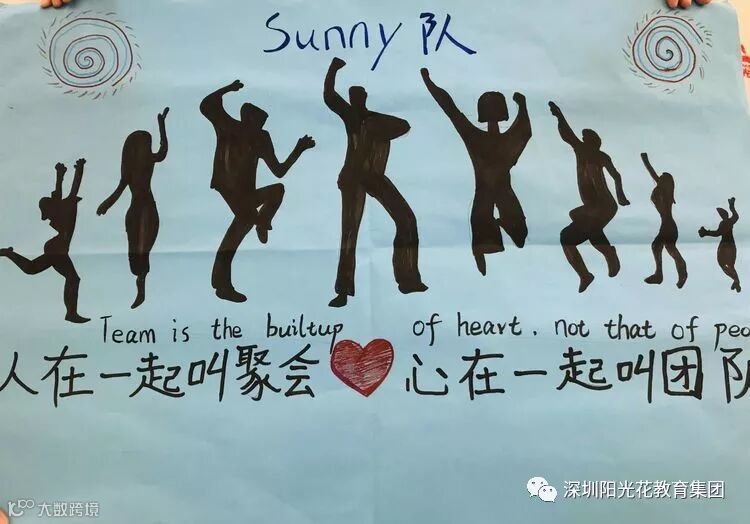 Sunny 队
Team is the builtup of heart. not that of peo
人在一起叫聚会 心在一起叫团队
深圳阳光花教育集团
大数跨境